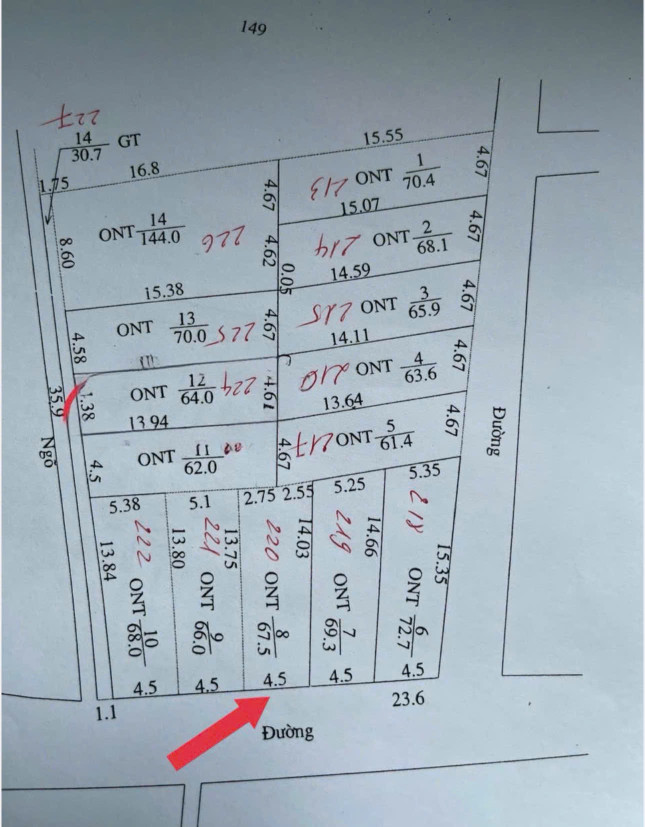 149
227
14
30.7
GT
15.55
16.8
1.75
ONT 1
70.4
213
4.67
4.67
15.07
ONT 14
144.0
226
8.60
4.62
ONT 2
68.1
214
4.67
0.05
14.59
15.38
ONT 3
65.9
215
4.67
ONT 13
70.0
225
4.67
4.58
14.11
ONT 4
63.6
210
4.67
ONT 12
64.0
224
4.61
1.38
35.9
13.64
13 94
ONT 5
61.4
217
4.67
Đường
ONT 11
62.0
4.67
4.5
Ngõ
5.38
5.1
2.75
2.55
5.25
5.35
222
221
220
219
218
13.84
13.80
13.75
14.03
14.66
15.35
ONT 10
68.0
ONT 9
66.0
ONT 8
67.5
ONT 7
69.3
ONT 6
72.7
4.5
4.5
4.5
4.5
4.5
1.1
23.6
Đường